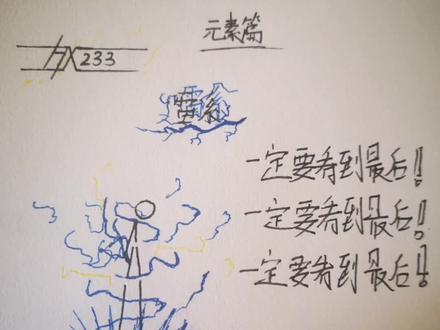 元素篇
233
雷系
一定要看到最后!
一定要看到最后!
一定要看到最后!